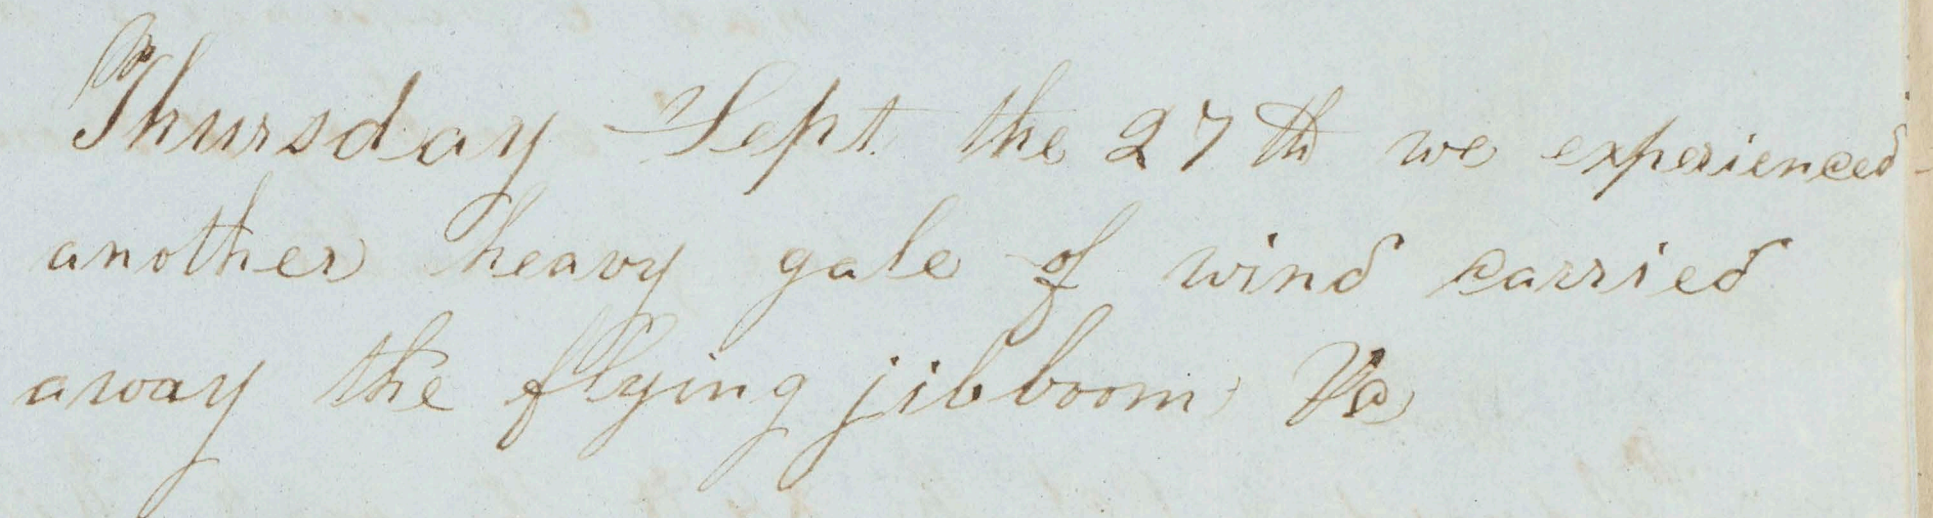 Thursday Sept the 27th we experienced
another heavy gale of wind carried
away the flying jibboom &c